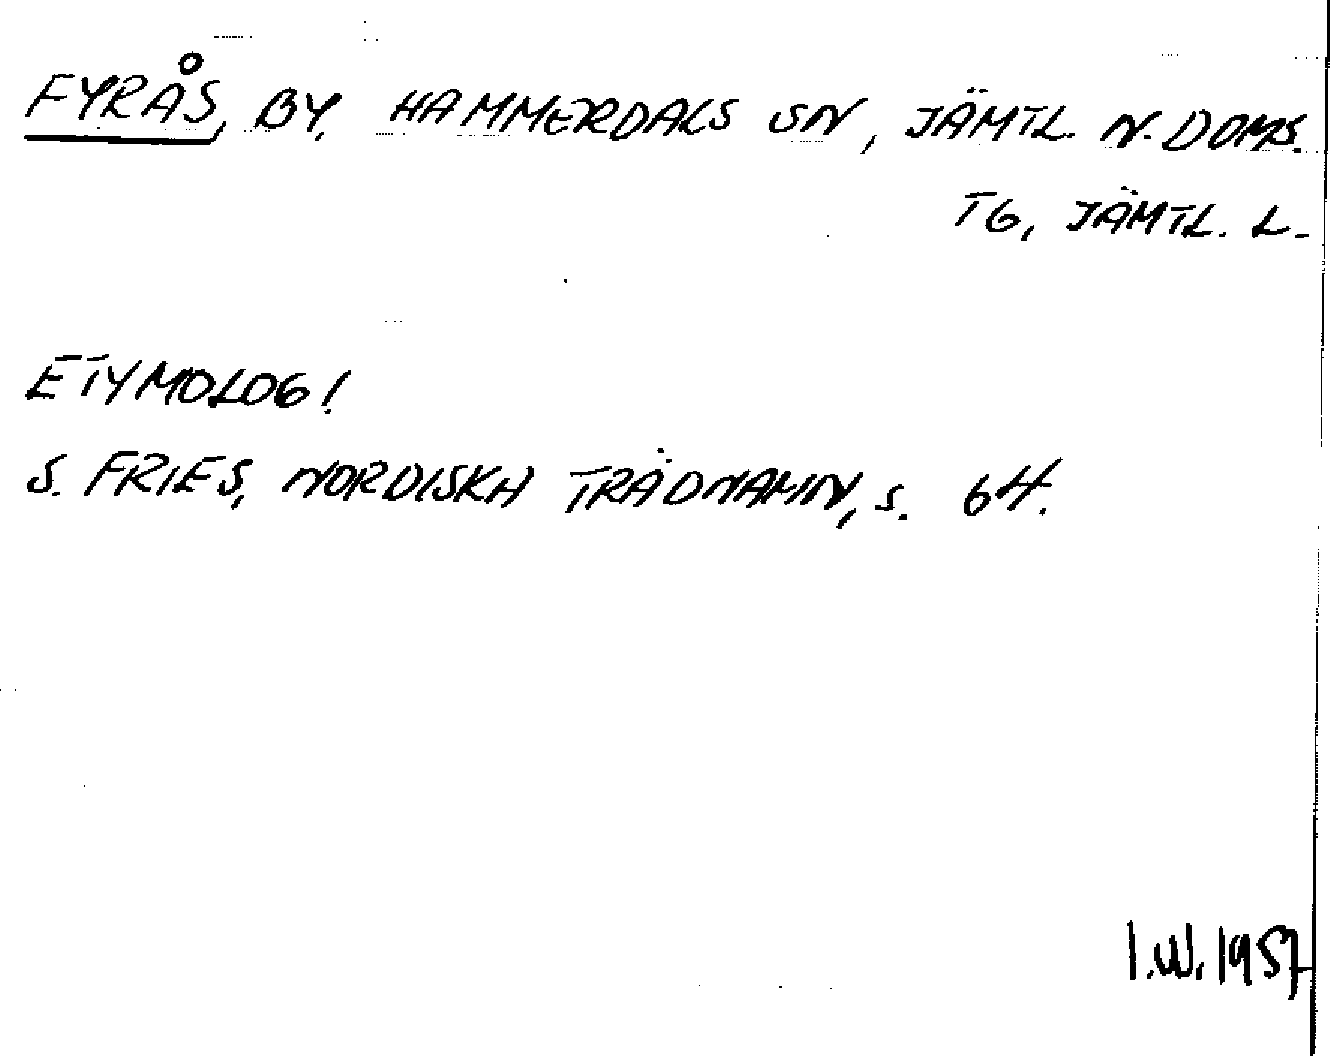 FYRÅS, BY, HAMMERDALS SN, JÄMTL. N. DOMS.
TG, JÄMTL. L.
ETYMOLOGI
S. FRIES, NORDISKA TRÄDNAMN, S. 64.
I.W. 1957